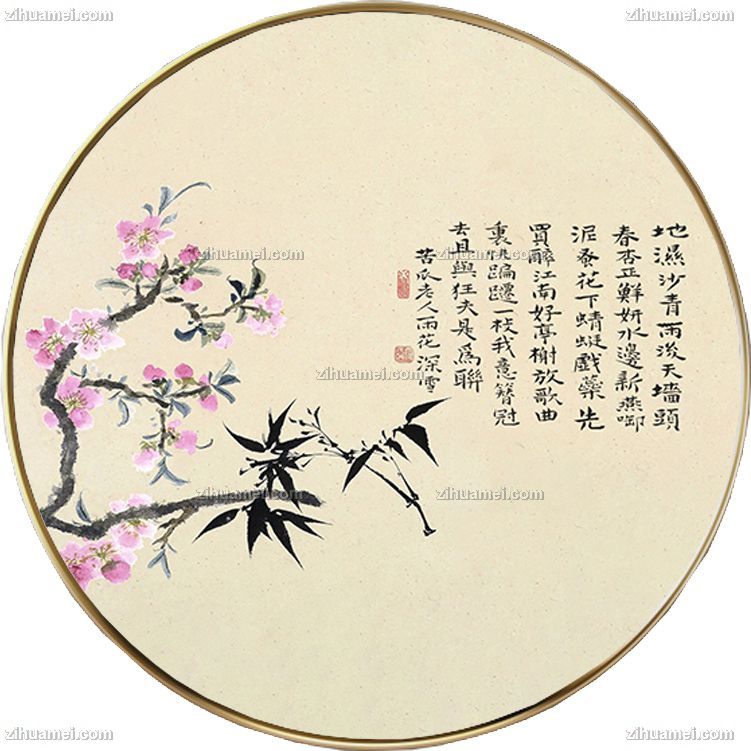 zihuamei.com
zihuamei.com
zihuamei.com
地濕沙青雨後天墻頭
春杏正鮮妍水邊新燕啣
泥香花下蜻蜓戲藥先
買醉江南好亭榭放歌曲
裏快蹁躚一枝我意簪冠
去且與狂夫是為聯
苦瓜老人雨花深雪
zihuamei.com
zihuamei.com
zihuamei.com
zihuamei.com
zihuamei.com
zihuamei.com
zihuamei.com
zihuamei.com
zihuamei.com
zihuamei.com